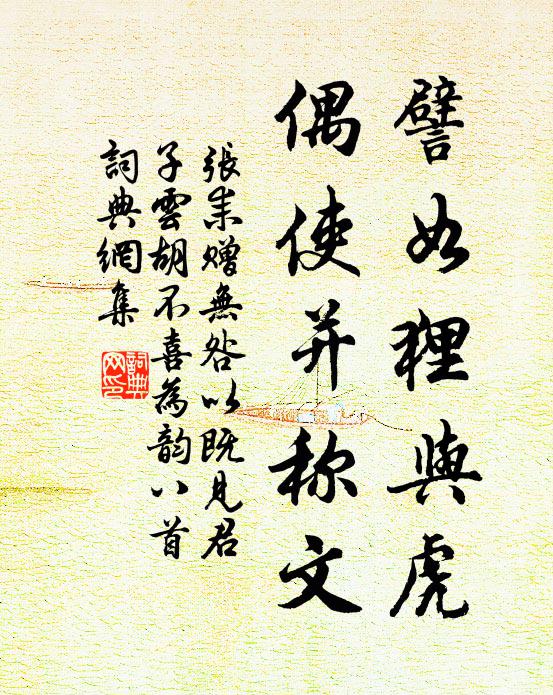 譬如狸與虎
偶使并称文
張耒贈無咎以既見君
子雲胡不喜為韵八首
詞典網集
詞典
网印